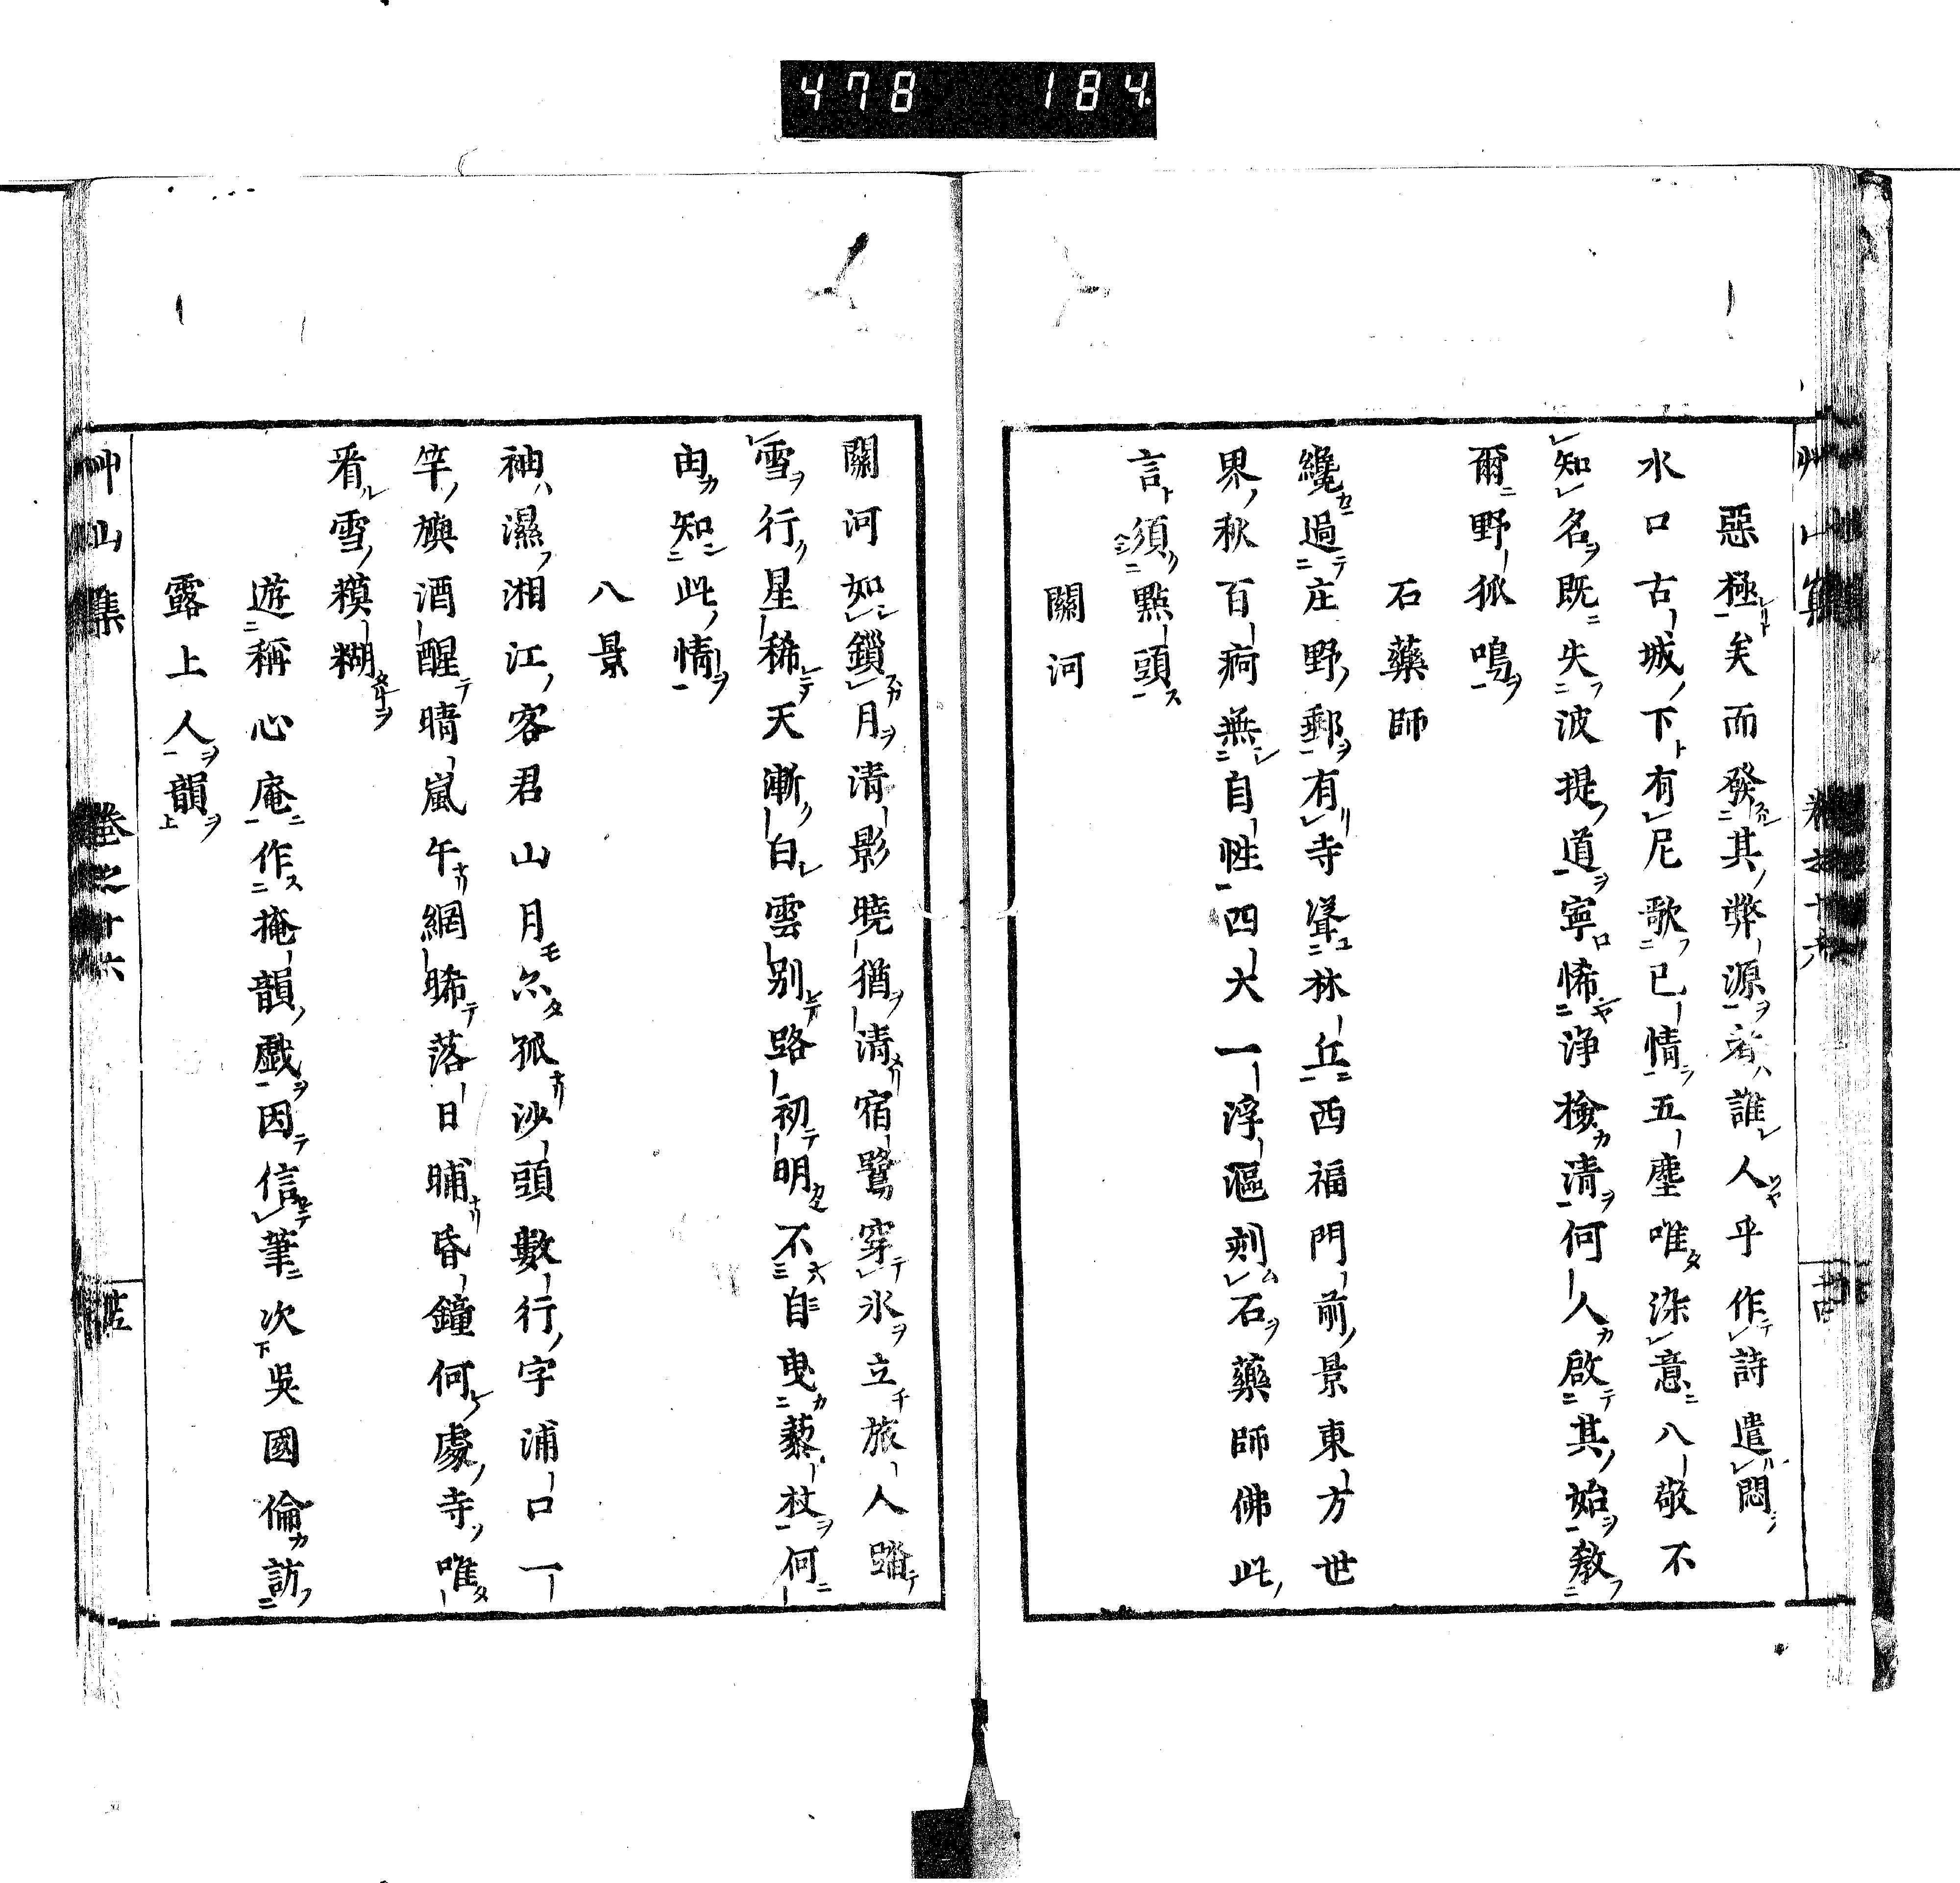 478 184
惡極矣而發其弊源者誰人乎作詩遣悶
水口古城下有尼歌已情五塵唯染意八敬不
知名既失波提道寧悕浄檢清何人啟其始教
爾野狐鳴
石藥師
纔過庄野郵有寺聳林丘西福門前景東方世
界秋百痾無自性四大一浮漚刻石藥師佛此
言須點頭
關河
關河如鎖月清影曉猶清宿鷺穿氷立旅人蹈
雪行星稀天漸白雲別路初明不自曳藜杖何
由知此情
八景
袖濕湘江客君山月尓孤沙頭數行字浦口一
竿旗酒醒晴嵐午網晞落日晡昏鐘何處寺唯
看雪糢糊
遊稱心庵作掩韻戲因信筆次吳國倫訪
露上人韻
艸山集 卷之十六